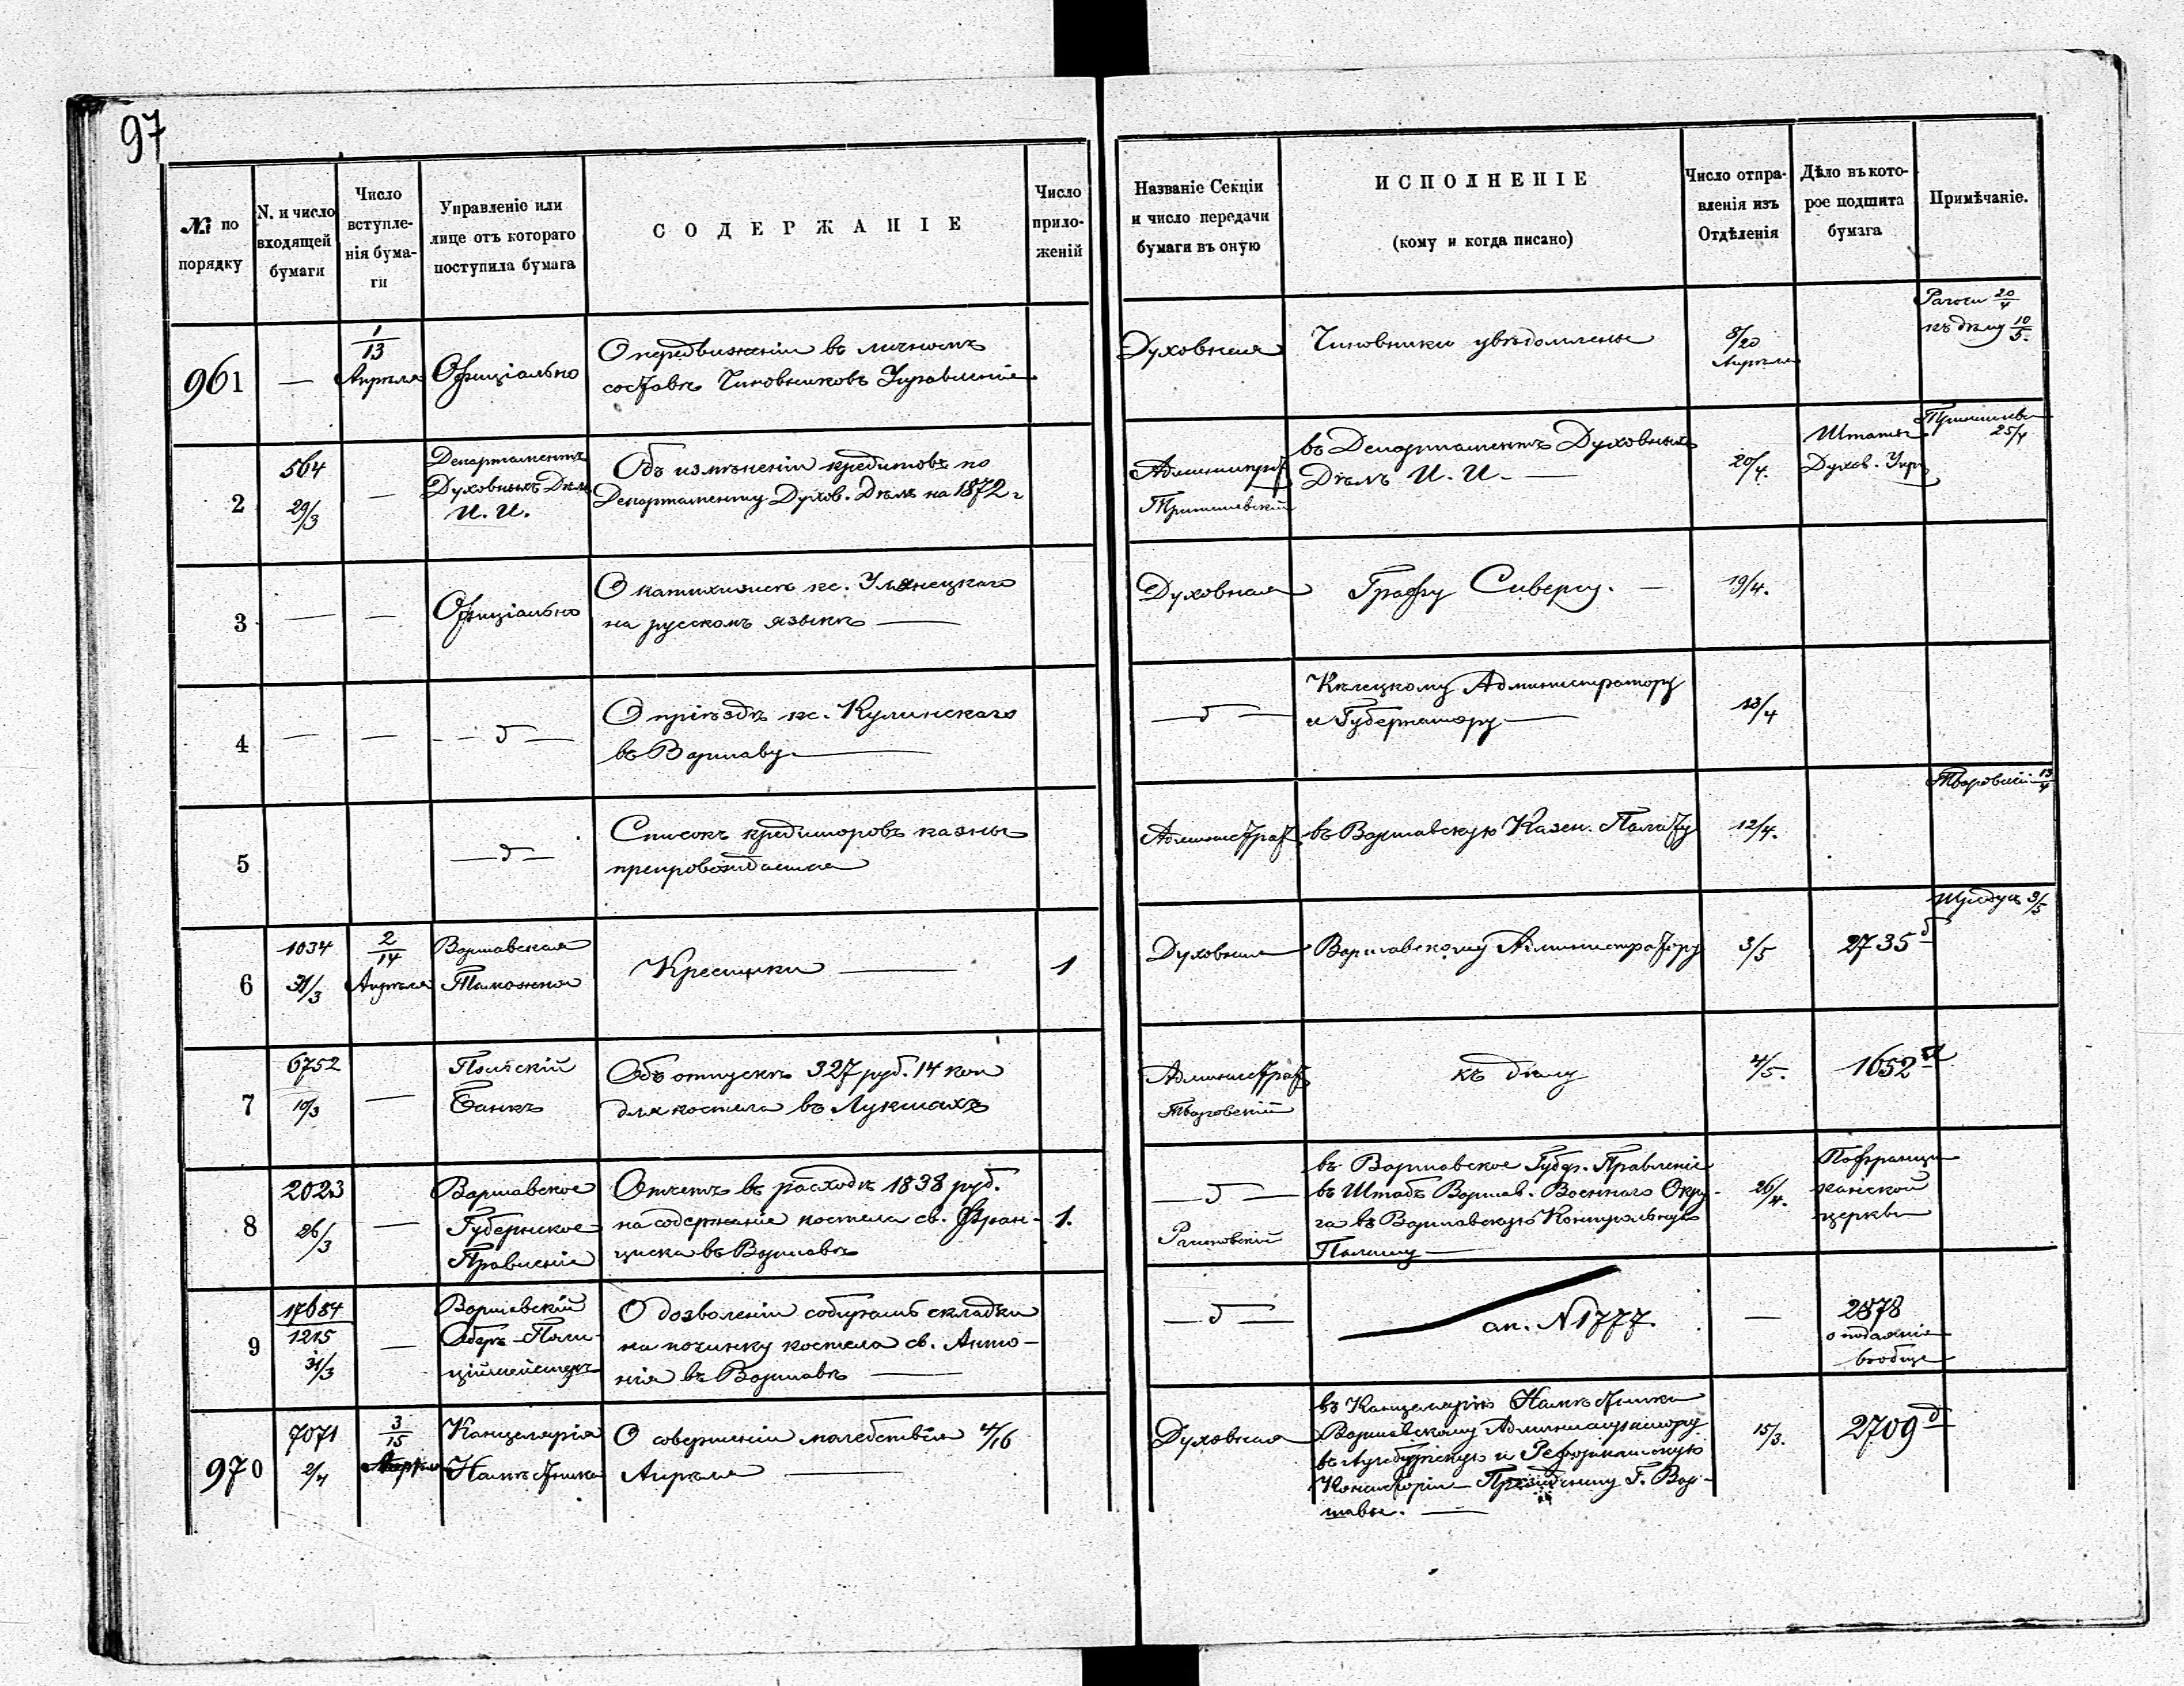 97
№ по порядку
N. и число входящей бумаги
Число вступле-нія бума-ги
Управленіе или лице отъ котораго поступила бумага
СОДЕРЖАНІЕ
Число прило-женій
Названіе Секціи и число передачи бумаги въ оную
ИСПОЛНЕНІЕ
(кому и когда писано)
Число отпра-вленія изъ Отдѣленія
Дѣло въ кото-рое подшита бумага
Примѣчаніе.
961
—
1/13
Апрѣля
Офиціально
О передвиженіи въ личномъ
составѣ Чиновниковъ Управленія
Духовная
Чиновники увѣдомлены
8/20
Апрѣля
20/4
къ дѣлу 10/5.
2
564
29/3
—
Департаментъ
Духовныхъ Дѣлъ
И. И.
Объ измѣненіи кредитовъ по
Департаменту Духов. Дѣлъ на 1872 г
Администр
въ Департаментъ Духовныхъ
Дѣлъ И. И. —
20/4.
Штаты
Духов. Упр
25/4
3
—
—
Офиціально
О катихизисѣ кс. Улянецкаго
на русскомъ языкѣ —
Духовная
Графу Сиверсу. —
19/4.
4
—
—
О пріѣздѣ кс. Кулинскаго
въ Варшаву —
Кѣлецкому Администратору
и Губернатору —
13/4
5
Списокъ кредиторовъ казны
препровождается
Администрат
въ Варшавскую Казен. Палату
12/4.
Творовскій 13/4
6
1034
31/3
2/14
Апрѣля
Варшавская
Таможня
Крестики —
1
Духовная
Варшавскому Администратору
3/5
2735 д
3/5
7
6752
10/3
—
Польскій
Банкъ
Объ отпускѣ 327 руб. 14 коп
для костела въ Лукшахъ
Администрат
Творовскій
къ дѣлу
4/5.
1652
8
2023
26/3
—
Варшавское
Губернское
Правленіе
Отчетъ въ расходѣ 1838 руб.
на содержаніе костела св. Фран-
циска въ Варшавѣ
1.
въ Варшавское Губер. Правленіе
въ Штабъ Варшав. Военнаго Окру-
га въ Варшавскую Контрольную
Палату —
26/4.
Пофранци
канской
церкви
9
17684
1215
31/3
—
Варшавскій
Оберъ-Поли-
ціймейстеръ
О дозволеніи собирать складки
на починку костела св. Анто-
нія въ Варшавѣ —
N 1777.
—
2878
о подаяніи
вообще
970
7071
2/4
3/15
Апрѣля
Канцелярія
Намѣстника
О совершеніи молебствія 4/16
Апрѣля —
Духовная
въ Канцелярію Намѣстника
Варшавскому Администратору
въ Аугсбургскую и Реформатскую
Консисторіи — Президенту Г. Вар-
шавы. —
15/3.
2709 д